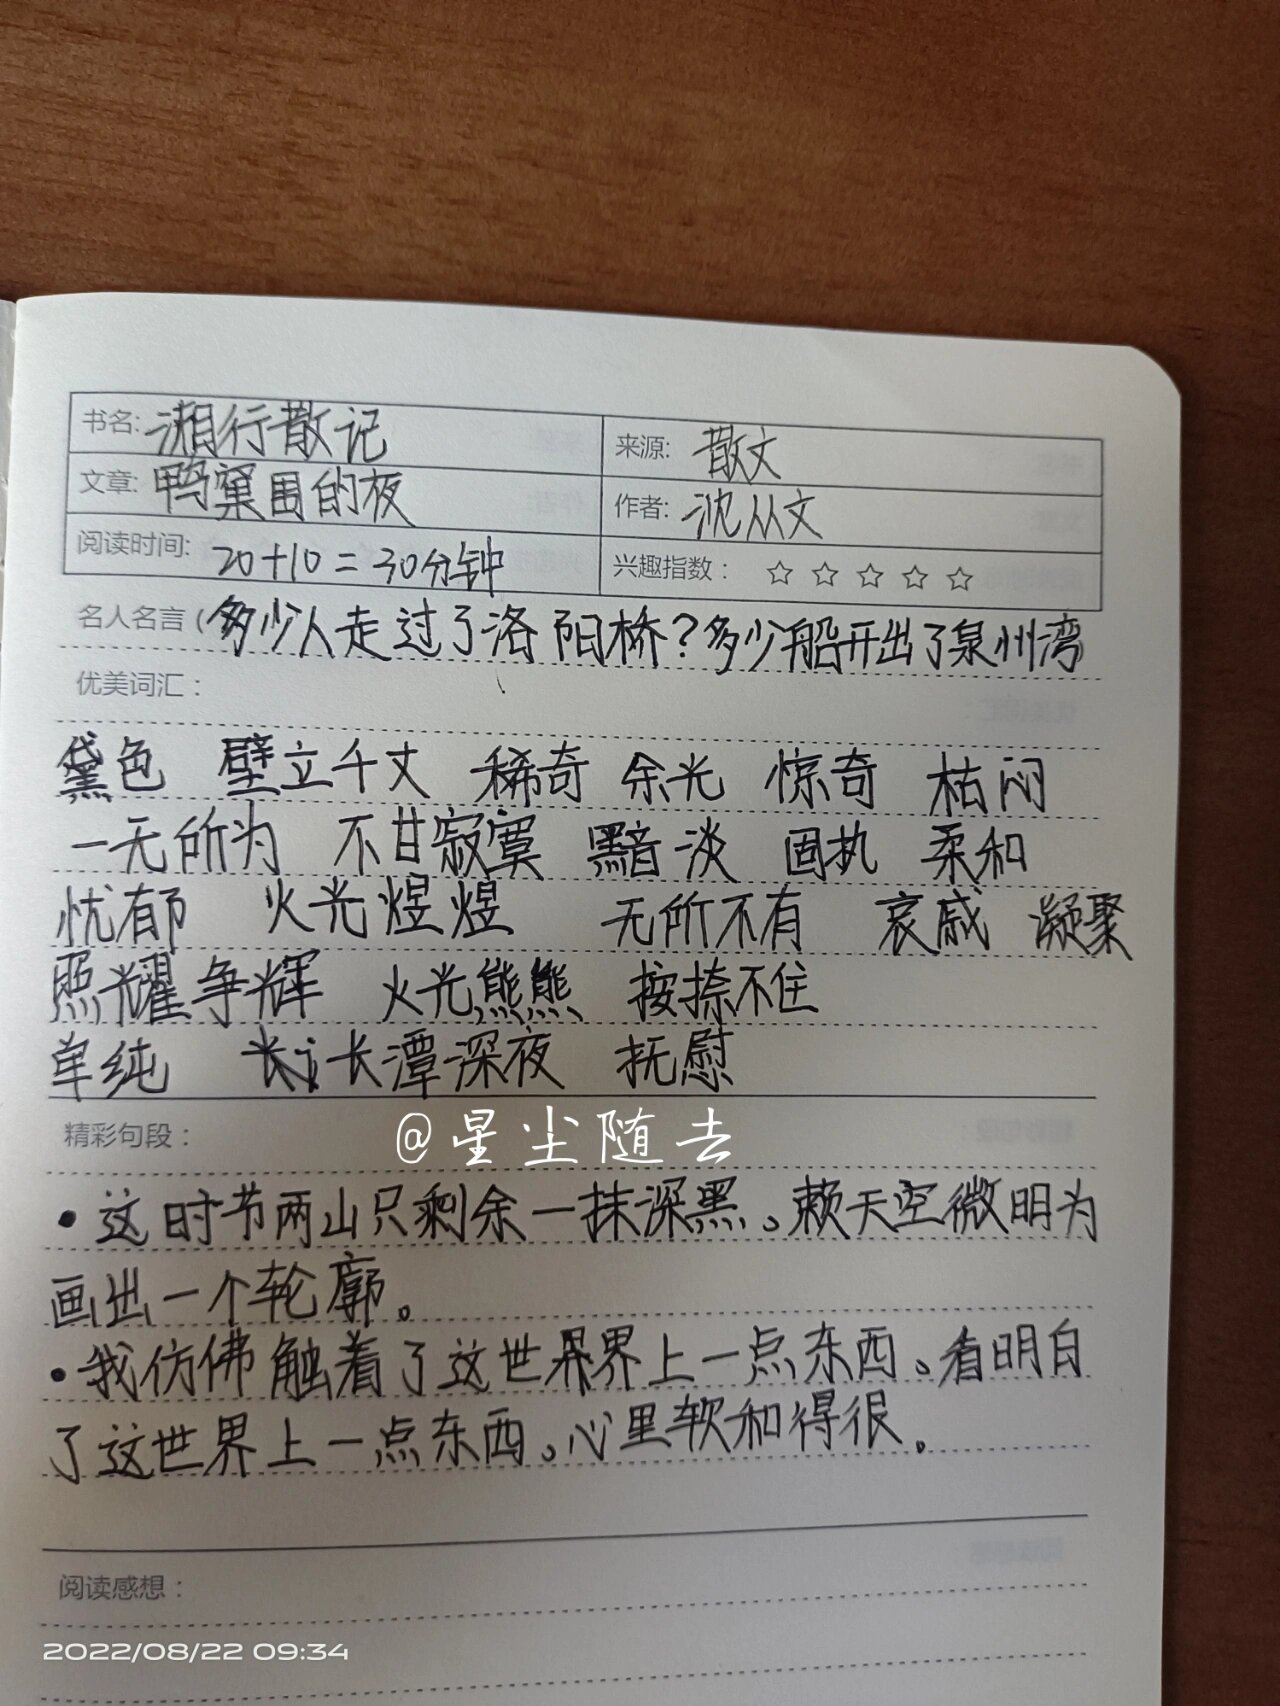 书名: 湘行散记
来源: 散文
文章: 鸭窠围的夜
作者: 沈从文
阅读时间: 20+10=30分钟
兴趣指数： ☆ ☆ ☆ ☆ ☆
名人名言(多少人走过了洛阳桥?多少船开出了泉州湾
优美词汇：
黛色 壁立千丈 稀奇 余光 惊奇 枯闷
一无所为 不甘寂寞 黯淡 固执 柔和
忧郁 火光煜煜 无所不有 哀戚 凝聚
照耀争辉 火光熊熊 按捺不住
单纯 长潭深夜 抚慰
精彩句段：
@星尘随去
•这时节两山只剩余一抹深黑。赖天空微明为
画出一个轮廓。
•我仿佛触着了这世界上一点东西。看明白
了这世界上一点东西。心里软和得很。
阅读感想：
2022/08/22 09:34